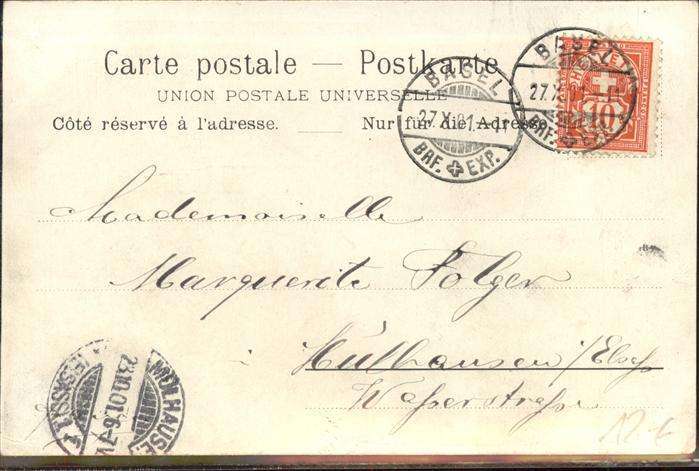 Carte postale — Postkarte
UNION POSTALE UNIVERSELLE
Côté réservé à l'adresse. — Nur für die Adresse.
BASEL
27.X.01.
BRF. EXP.
BASEL
27.X
BRF. EXP.
10
Mademoiselle
Marguerite Folger
Mülhausen/Elsass
Wesserstrasse
MÜLHAUSEN
23.10.01.6-7V.
(ELSASS) 1
12.-€